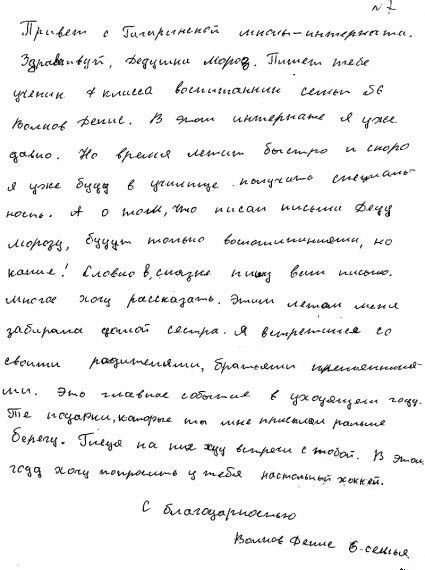 № 7
Привет с Гагаринской школы-интерната.
Здравствуй, Дедушка Мороз. Пишет тебе
ученик 7 класса воспитанник семьи №6
Волков Денис. В этом интернате я уже
давно. Но время летит быстро и скоро
я уже буду в училище получать специаль-
ность. А о том, что писал письма Деду
Морозу, будут только воспоминаниями, но
какие! Словно в сказке пишу вам письмо.
Многое хочу рассказать. Этим летом меня
забирала домой сестра. Я встретился со
своими родителями, братьями племянника-
ми. Это главное событие в уходящем году.
Те подарки, которые ты мне присылал раньше
берегу. Глядя на них жду встречи с тобой. В этом
году хочу попросить у тебя настольный хоккей.
С благодарностью
Волков Денис 6-семья.